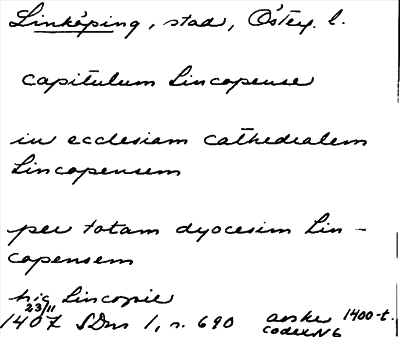 Linköping, stad, Österg. l.
capitulum Lincopense
in ecclesiam cathedralem
Lincopensem
per totam dyocesim Lin-
copensem
hig Lincopie
23/11
1407 SDns 1, n. 690 avskr 1400-t.
codex N6